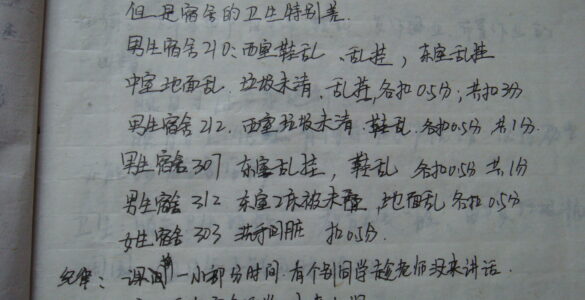 但是宿舍的卫生特别差.
男生宿舍210:西室鞋乱、乱挂,东室乱挂
中室地面乱.垃圾未清、乱挂,各扣0.5分;共扣3分
男生宿舍212.西室垃圾未清.鞋乱.各扣0.5分共1分.
男生宿舍307 东室乱挂,鞋乱 各扣0.5分共1分
男生宿舍312 东室2床被未叠,地面乱各扣0.5分
女生宿舍303 洗手间脏 扣0.5分.
纪律:课间一小部分时间.有个别同学趁老师没来讲话.